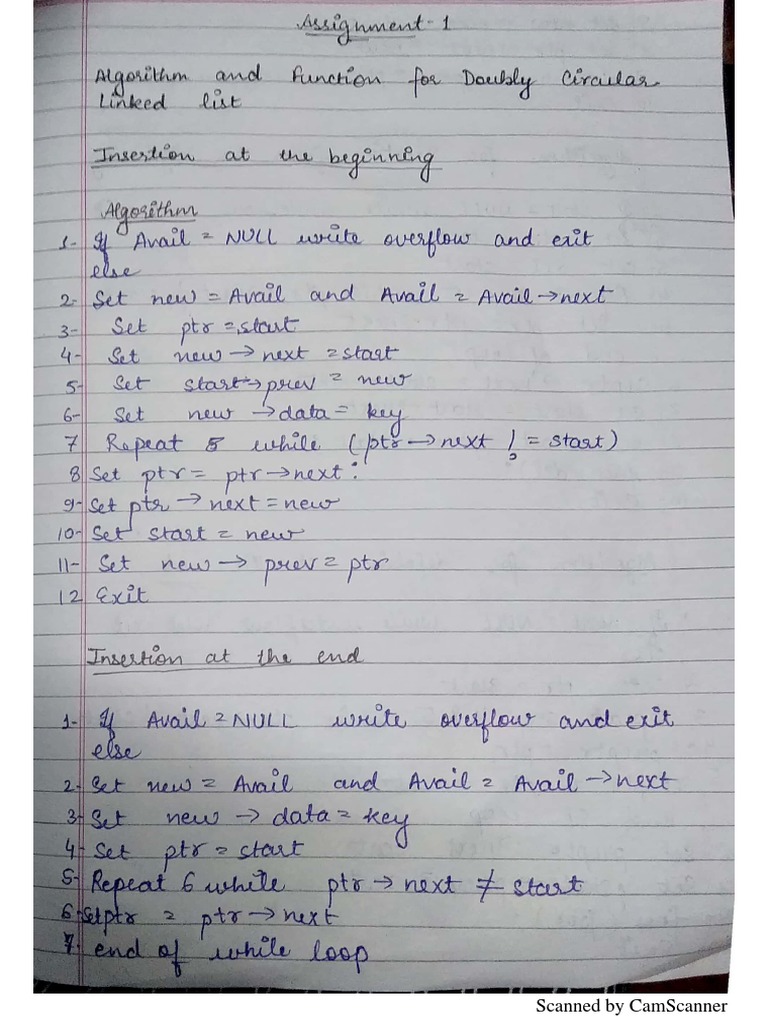 Assignment-1
Algorithm and Function for Doubly Circular
Linked list
Insertion at the beginning
Algorithm
1- If Avail = NULL write overflow and exit
else
2- Set new = Avail and Avail = Avail → next
3- Set ptr = start
4- Set new → next = start
5- Set start → prev = new
6- Set new → data = key
7 Repeat 8 while (ptr → next != start)
8 Set ptr = ptr → next:
9- Set ptr → next = new
10- Set start = new
11- Set new → prev = ptr
12 Exit
Insertion at the end
1- If Avail = NULL write overflow and exit
else
2- Set new = Avail and Avail = Avail → next
3- Set new → data = key
4- Set ptr = start
5- Repeat 6 while ptr → next ≠ start
6- Set ptr = ptr → next
7- end of while loop
Scanned by CamScanner